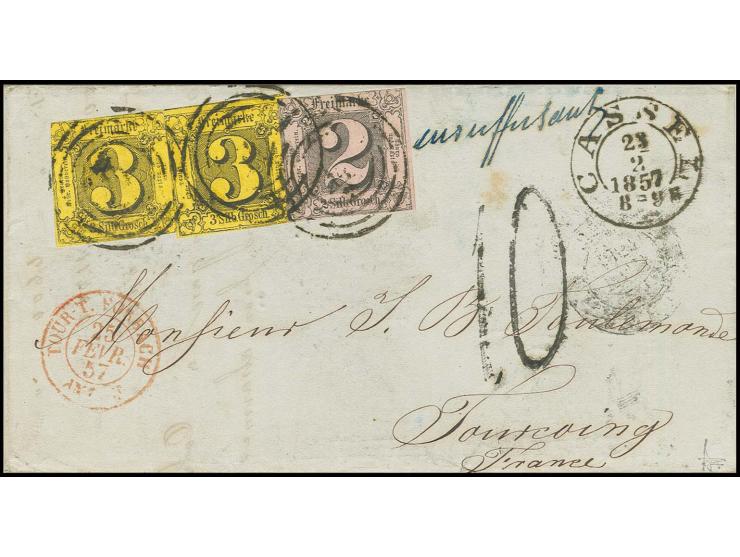 Freimarke
3
3 Silb. Grosch.
Freimarke
3
3 Silb. Grosch.
Freimarke
2
2 Silb. Grosch.
insuffisant
CASSEL
23
2
1857
10
TOUR-T. FORBACH
25
FEVR.
57
Monsieur J. B.
Tourcoing
France